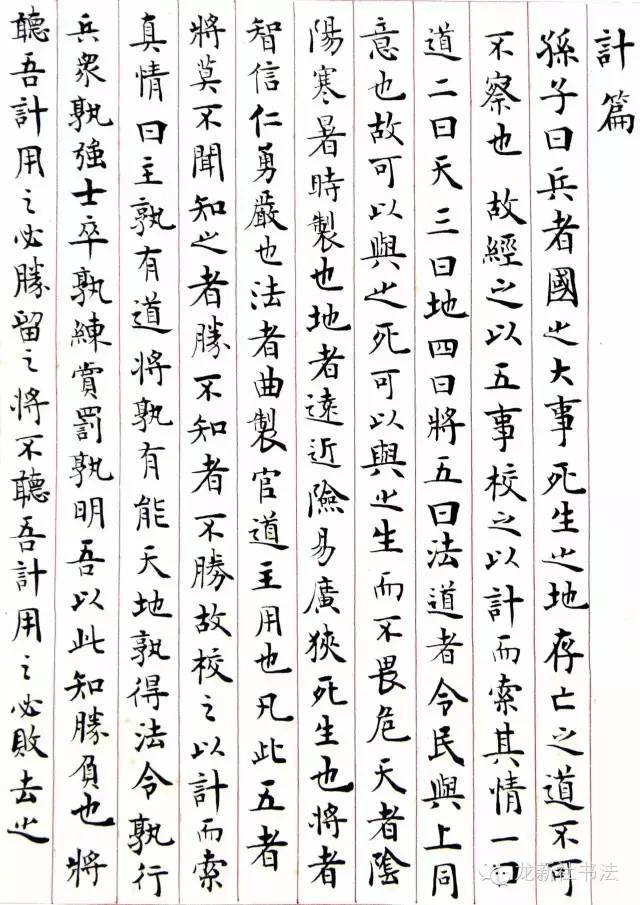 計篇
孫子曰兵者國之大事死生之地存亡之道不可
不察也 故經之以五事校之以計而索其情一曰
道二曰天三曰地四曰將五曰法道者令民與上同
意也故可以與之死可以與之生而不畏危天者陰
陽寒暑時製也地者遠近險易廣狹死生也將者
智信仁勇嚴也法者曲製官道主用也凡此五者
將莫不聞知之者勝不知者不勝故校之以計而索
真情曰主孰有道將孰有能天地孰得法令孰行
兵衆孰強士卒孰練賞罰孰明吾以此知勝負也 將
聽吾計用之必勝留之將不聽吾計用之必敗去之
龙新社书法